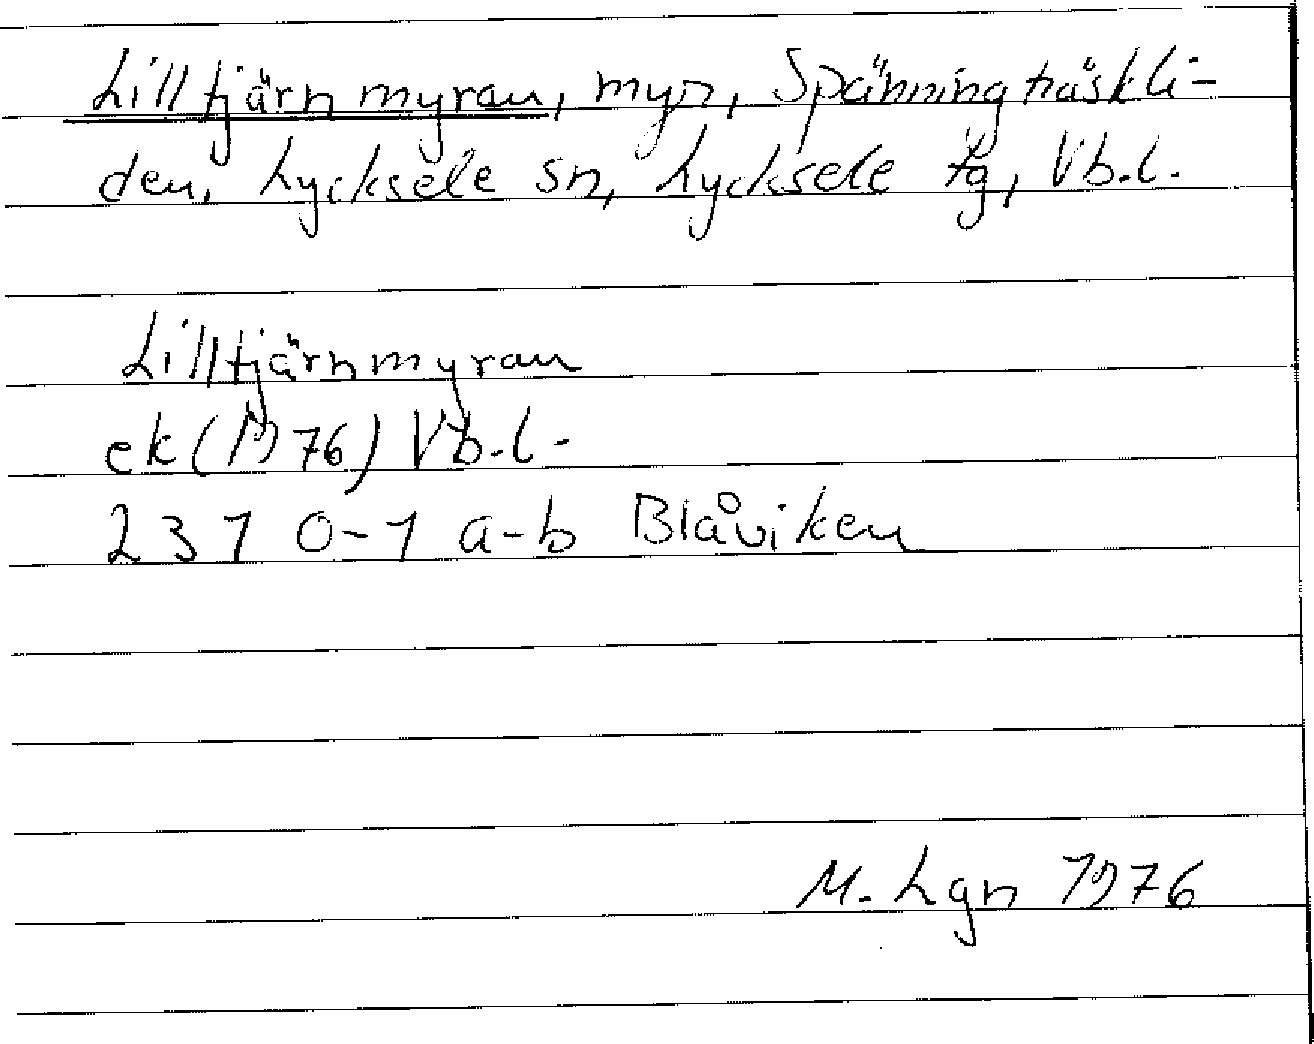 Lilltjärnmyran, myr, Spänningträskli-
den, Lycksele sn, Lycksele tg, Vb.l.
Lilltjärnmyran
ek (1976) Vb.l.
23 I 0-1 a-b Blåviken
M. Lgn 1976